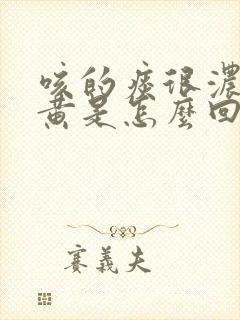 咳的痰很濃
黃是怎麼回
賽義夫